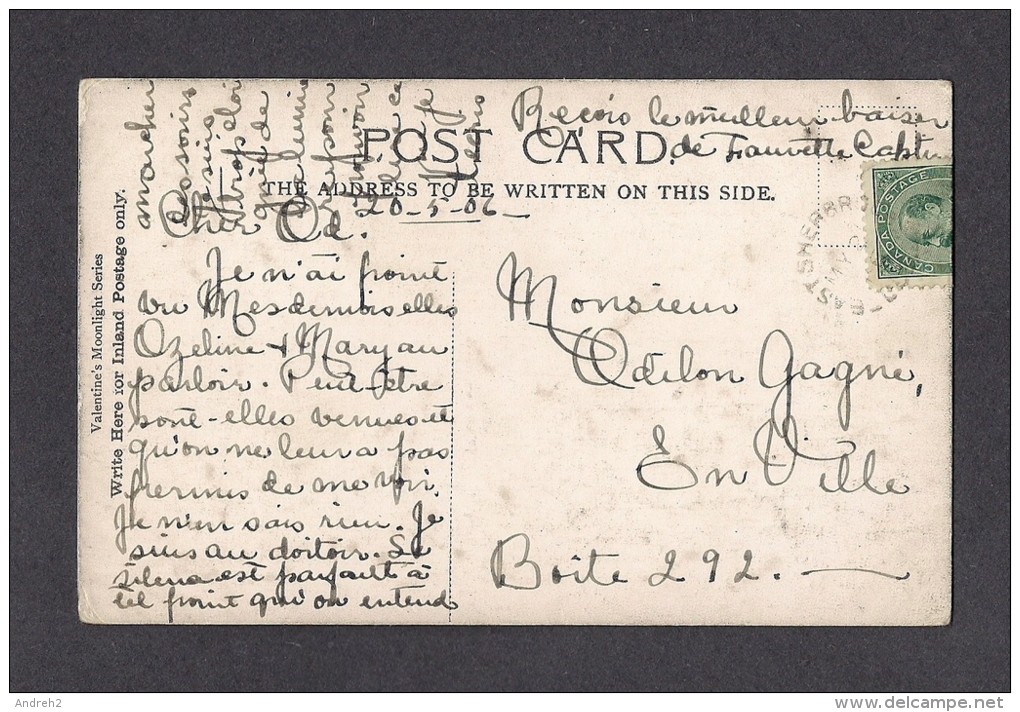 POST CARD.
THE ADDRESS TO BE WRITTEN ON THIS SIDE.
Valentine's Moonlight Series
Write Here for Inland Postage only.
20-5-06
Cher Od.
Je n'ai point
vu Mesdemoiselles
Ozeline + Mary au
parloir. Peut-être
sont-elles venues et
qu'on ne leur a pas
permis de me voir.
Je n'en sais rien. Je
suis au doitoir. Le
silence est parfait à
tel point qu'on entend
marcher
Reçois le meilleur baiser
de Fauvette
Monsieur
Odilon Gagné,
En Ville
Boîte 292.
CANADA POSTAGE
EAST SHERBRO
Andreh2
delcampe.net